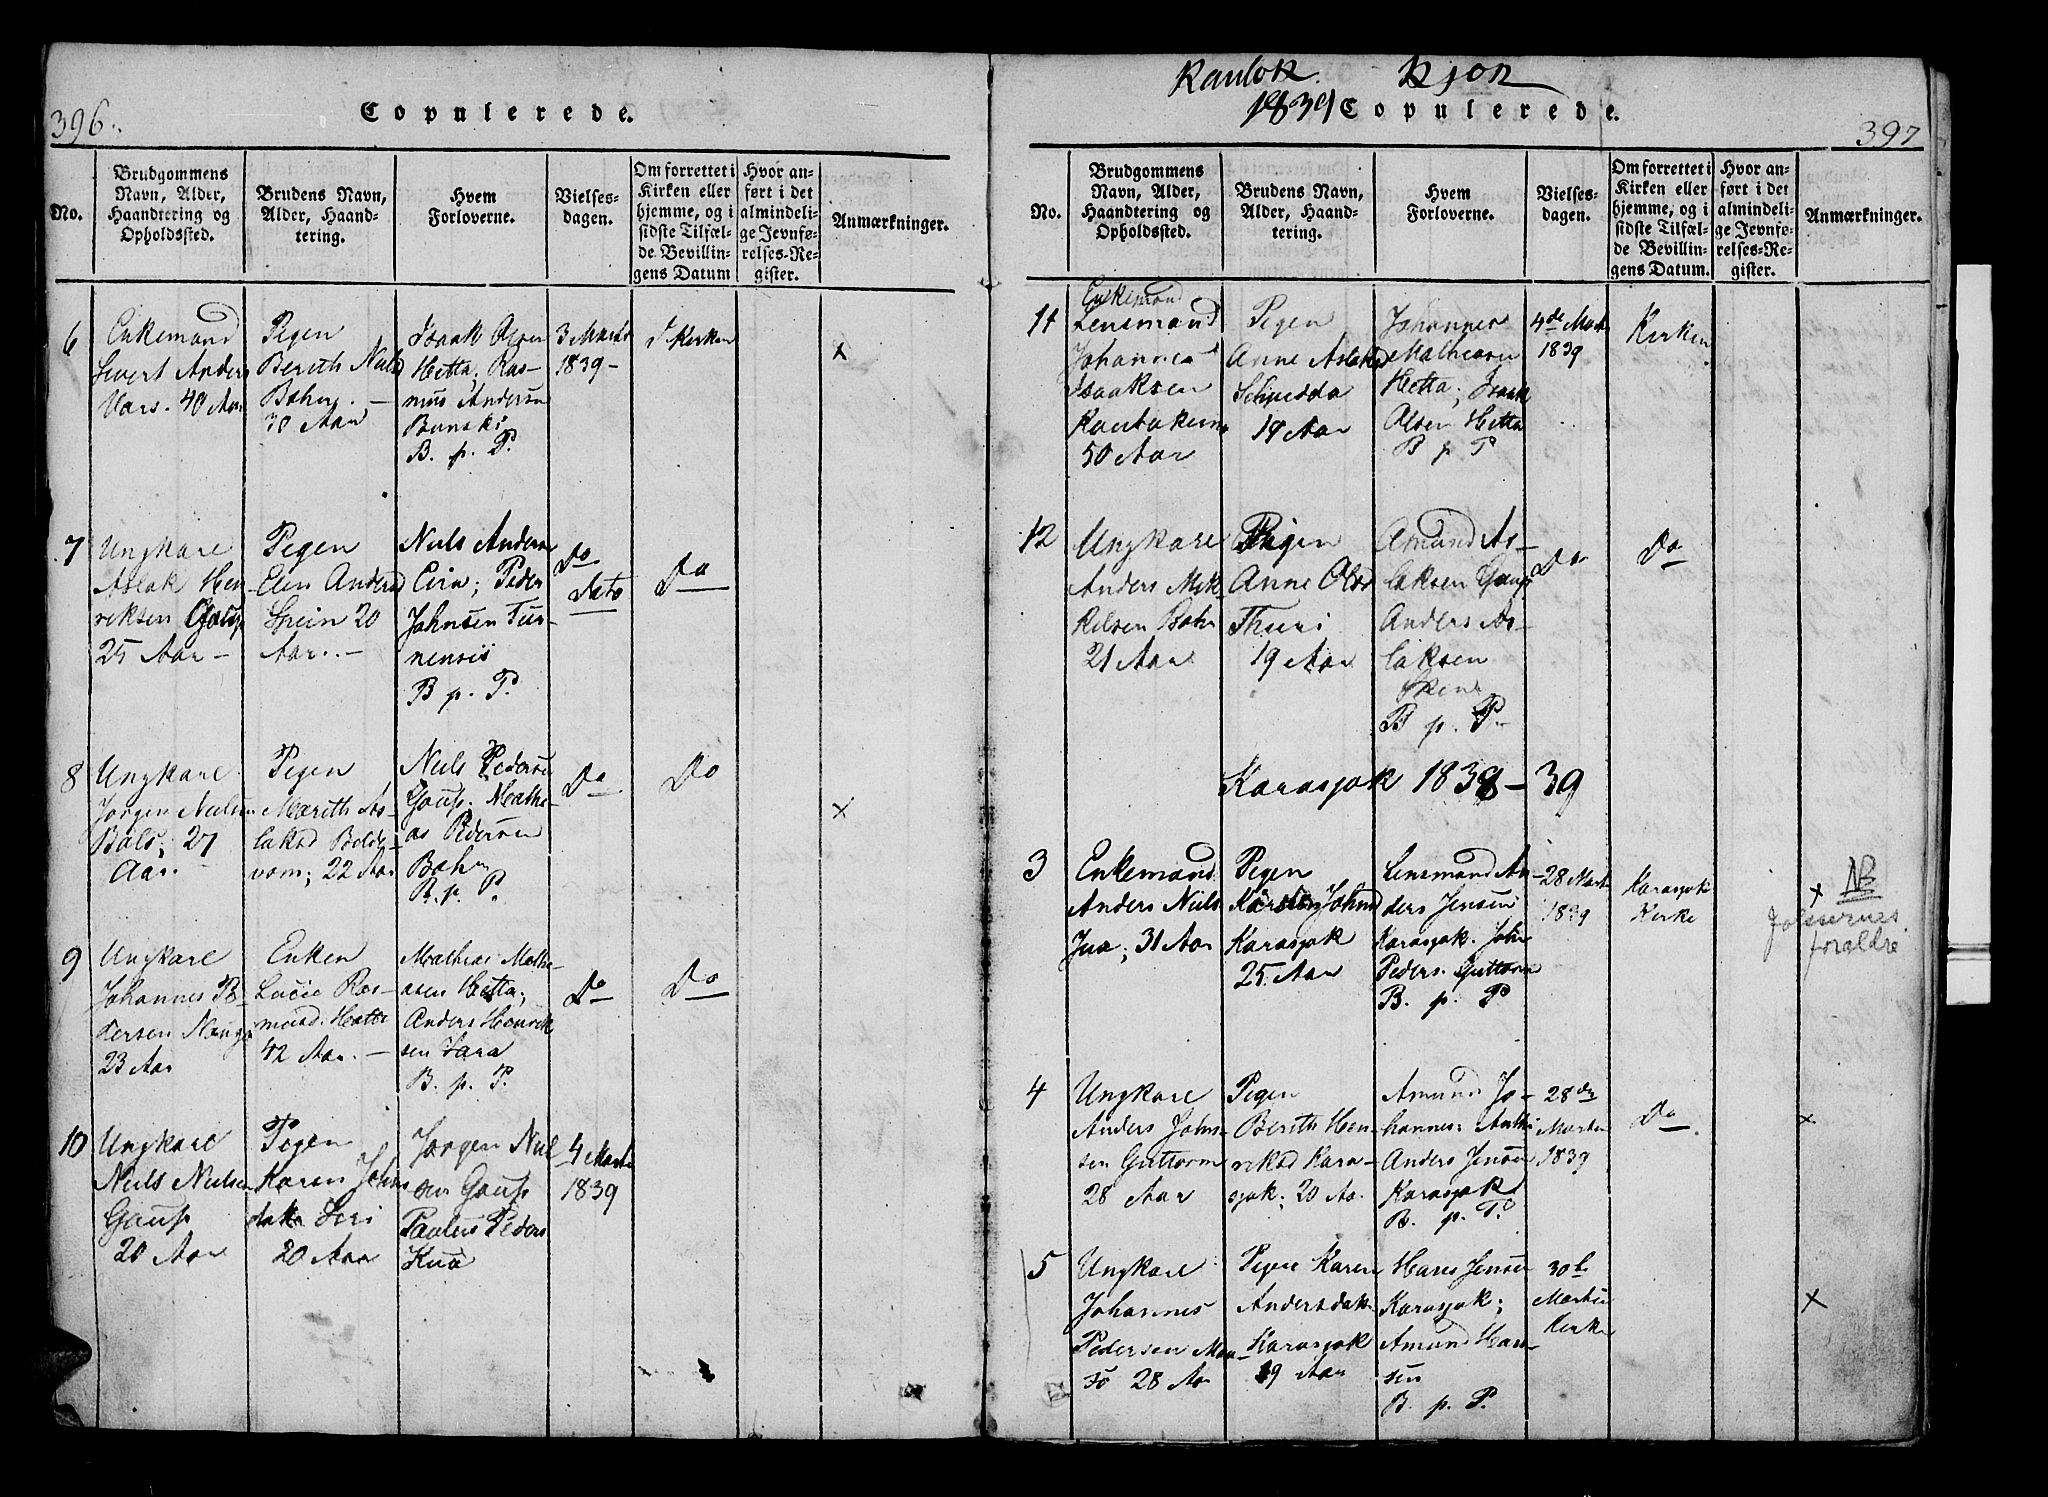 396.
Copulerede.
No.
Brudgommens
Navn, Alder,
Haandtering og
Opholdssted.
Brudens Navn,
Alder, Haand-
tering.
Hvem
Forloverne.
Vielses-
dagen.
Om forrettet i
Kirken eller
hjemme, og i
sidste Tilfæl-
de Bevillin-
gens Datum
Hvor an-
ført i det
almindeli-
ge Jevnfø-
relses-Re-
gister.
Anmærkninger.
6
Enkemand
Sivert Anders
Vars. 40 Aar
Pigen
Berith Niilsd
Bahr. —
30 Aar
Isaak Olsen
Hetta, Ras-
mus Andersen
Bunski
B. p. P.
3 Marts
1839 -
Kirken
x
7
Ungkare
Aslak Hen-
riksen Gaup
25 Aar —
Pigen
Elen Andersd
Spein 20
Aar. -
Niels Anders
Eira; Peder
Johnsen Tur-
nensis
B p. P.
Do
Dato
Do
8
Ungkare
Jørgen Nielsen
Bals; 27
Aar.
Pigen
Marith As-
laksd Belde-
vom; 22 Aar
Niels Pedersen
Gaup. Mathe-
as Pedersen
Bahr
B. p. P.
Do
Do
x
9
Ungkare
Johannes Pe-
dersen Nango
23 Aar
Enken
Lucie Ras-
musd. Hætta
42 Aar. —
Mathias Mathi-
asen Hetta,
Anders Henrik
sen Sara
B. p. P.
Do
Do
10
Ungkare
Niels Nielsen
Gaup
20 Aar
Pigen
Karen Johns
datr Siri
20 Aar
Jørgen Niel
sen Gaup
Paulus Peders
Kua
4 Marts
1839
Kautok. Kjon
1839 Copulerede.
397
No.
Brudgommens
Navn, Alder,
Haandtering og
Opholdssted.
Brudens Navn,
Alder, Haand-
tering.
Hvem
Forloverne.
Vielses-
dagen.
Om forrettet i
Kirken eller
hjemme, og i
sidste Tilfæl-
de Bevillin-
gens Datum.
Hvor an-
ført i det
almindeli-
ge Jevnfø-
relses-Re-
gister.
Anmærkninger.
11
Enkemand
Lensmand
Johannes
Isaaksen
Kautokeino
50 Aar
Pigen
Anne Aslaksd
19 Aar
Johannes
Mathisen
Hetta; Isaak
Olsen Hetta
B p P
4de Marts
1839
Kirken
12
Ungkare
Anders Mik-
kelsen Bahr
21 Aar
Pigen
Anne Olsd
Thuri
19 Aar
Amund As-
laksen Gaup
Anders As-
laksen
B p. P.
Do
Do
Karasjok 1838 - 39
3
Enkemand
Anders Niels
Jua; 31 Aar
Pigen
Kirsten Johnsd
Karasjok
25. Aar
Lensmand An-
ders Jensen
Karasjok. John
Peders. Guttorm
B. p. P
28 Marts
1839
Karasjok
Kirke
x
NB
forældre
4
Ungkare
Anders Johns-
sen Guttorm
28 Aar
Pigen
Berith Hen-
riksd Kara-
sjok; 20 Aar
Amund Jo-
hannes. Anthi
Anders Jensen
Karasjok
B. p. P.
28de
Marts
1839
Do
x
5
Ungkare
Johannes
Pedersen Mon-
so 28 Aar
Pigen Karen
Andersdatr
Karasjok
19 Aar
Hans Jensen
Karasjok;
Amund Han-
sen
B. p. P.
30te
Martsii
Kirke
x